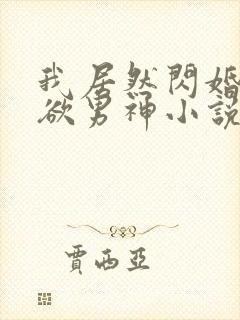 我居然閃婚
欲男神小說
賈西亞